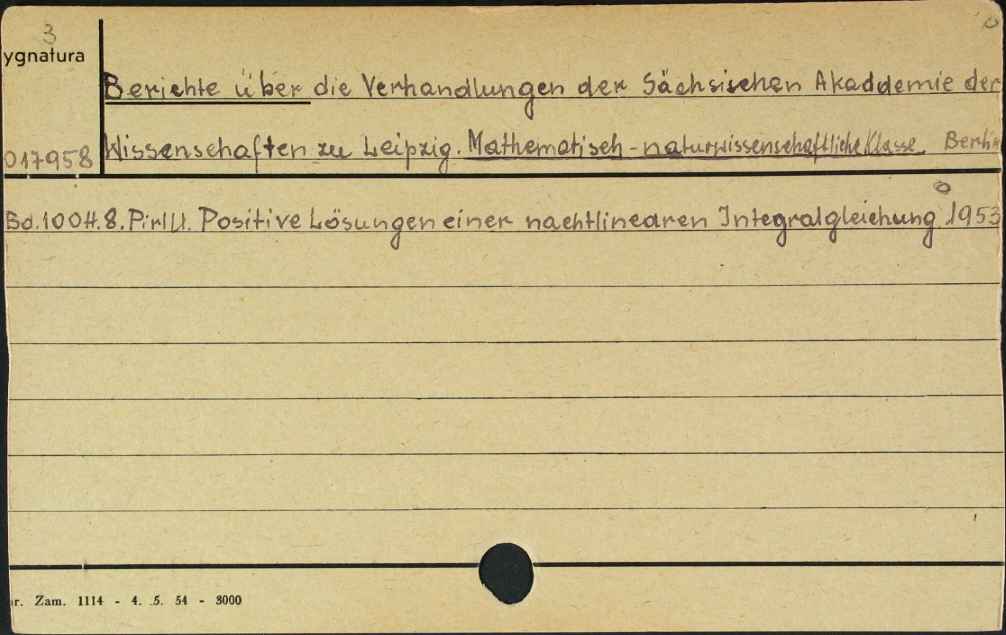 3
ygnatura
Berichte über die Verhandlungen der Sächsischen Akaddemie der
017958 Wissenschaften zu Leipzig. Mathematisch-naturwissenschaftliche Klasse. Berlin
Bd.100H.8. Pirl U. Positive Lösungen einer nachtlinearen Integralgleichung 1953
r. Zam. 1114 - 4. 5. 54 - 3000